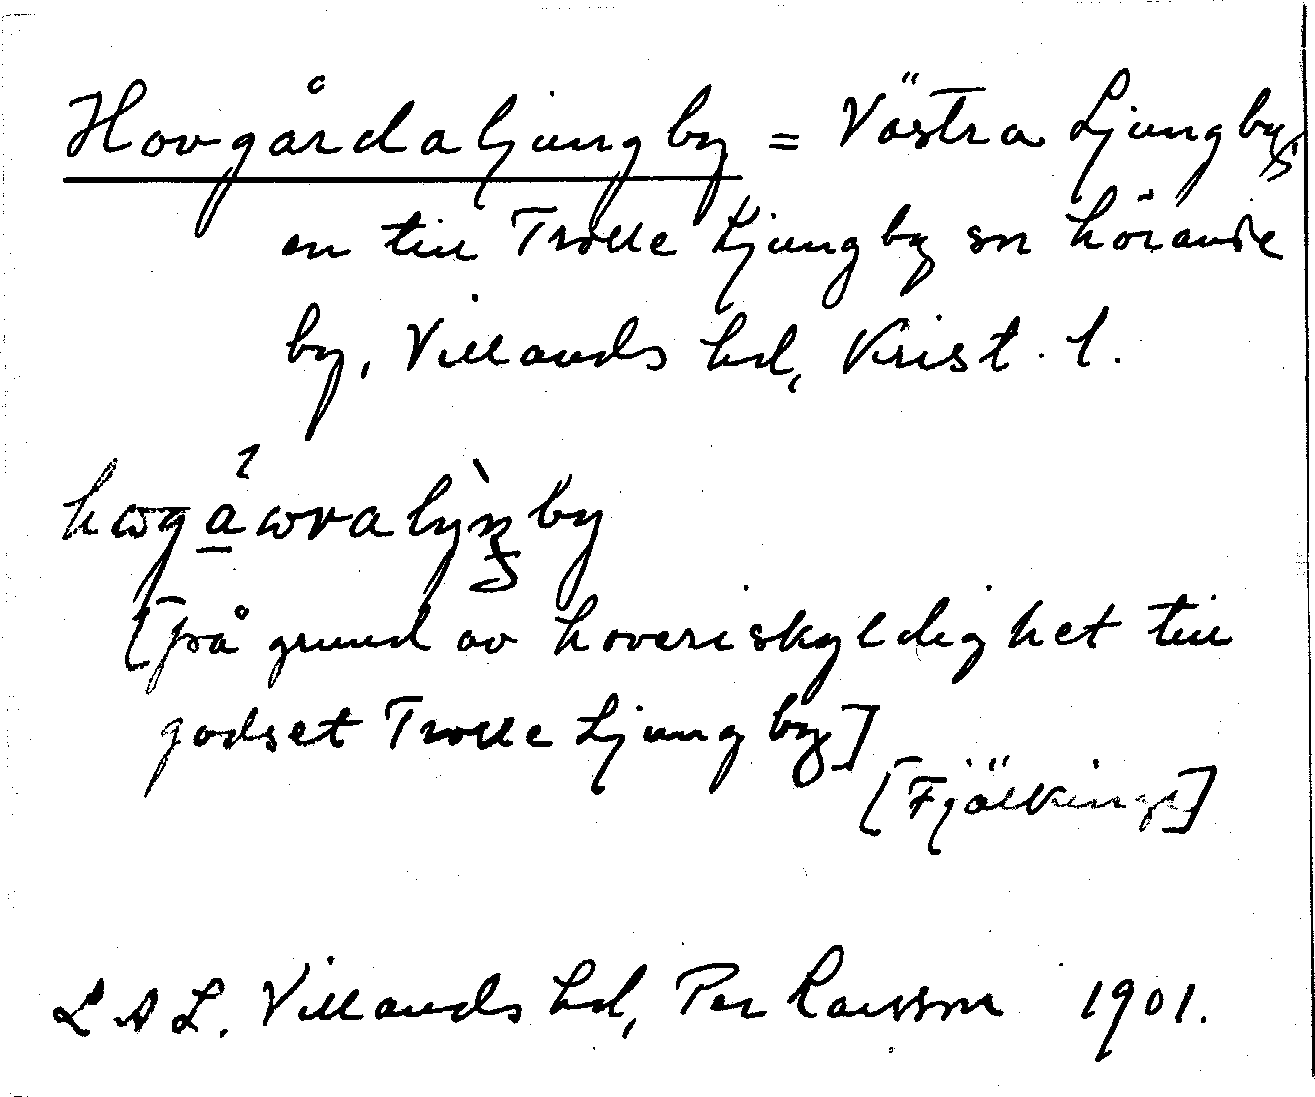 Hovgårdaljungby = Västra Ljungby,
en till Trolle Ljungby sn hörande
by, Villands hd, Krist. l.
[på grund av hoveriskyldighet till
godset Trolle Ljungby]
[Fjälkinge]
L A L. Villands hd, Per 1901.